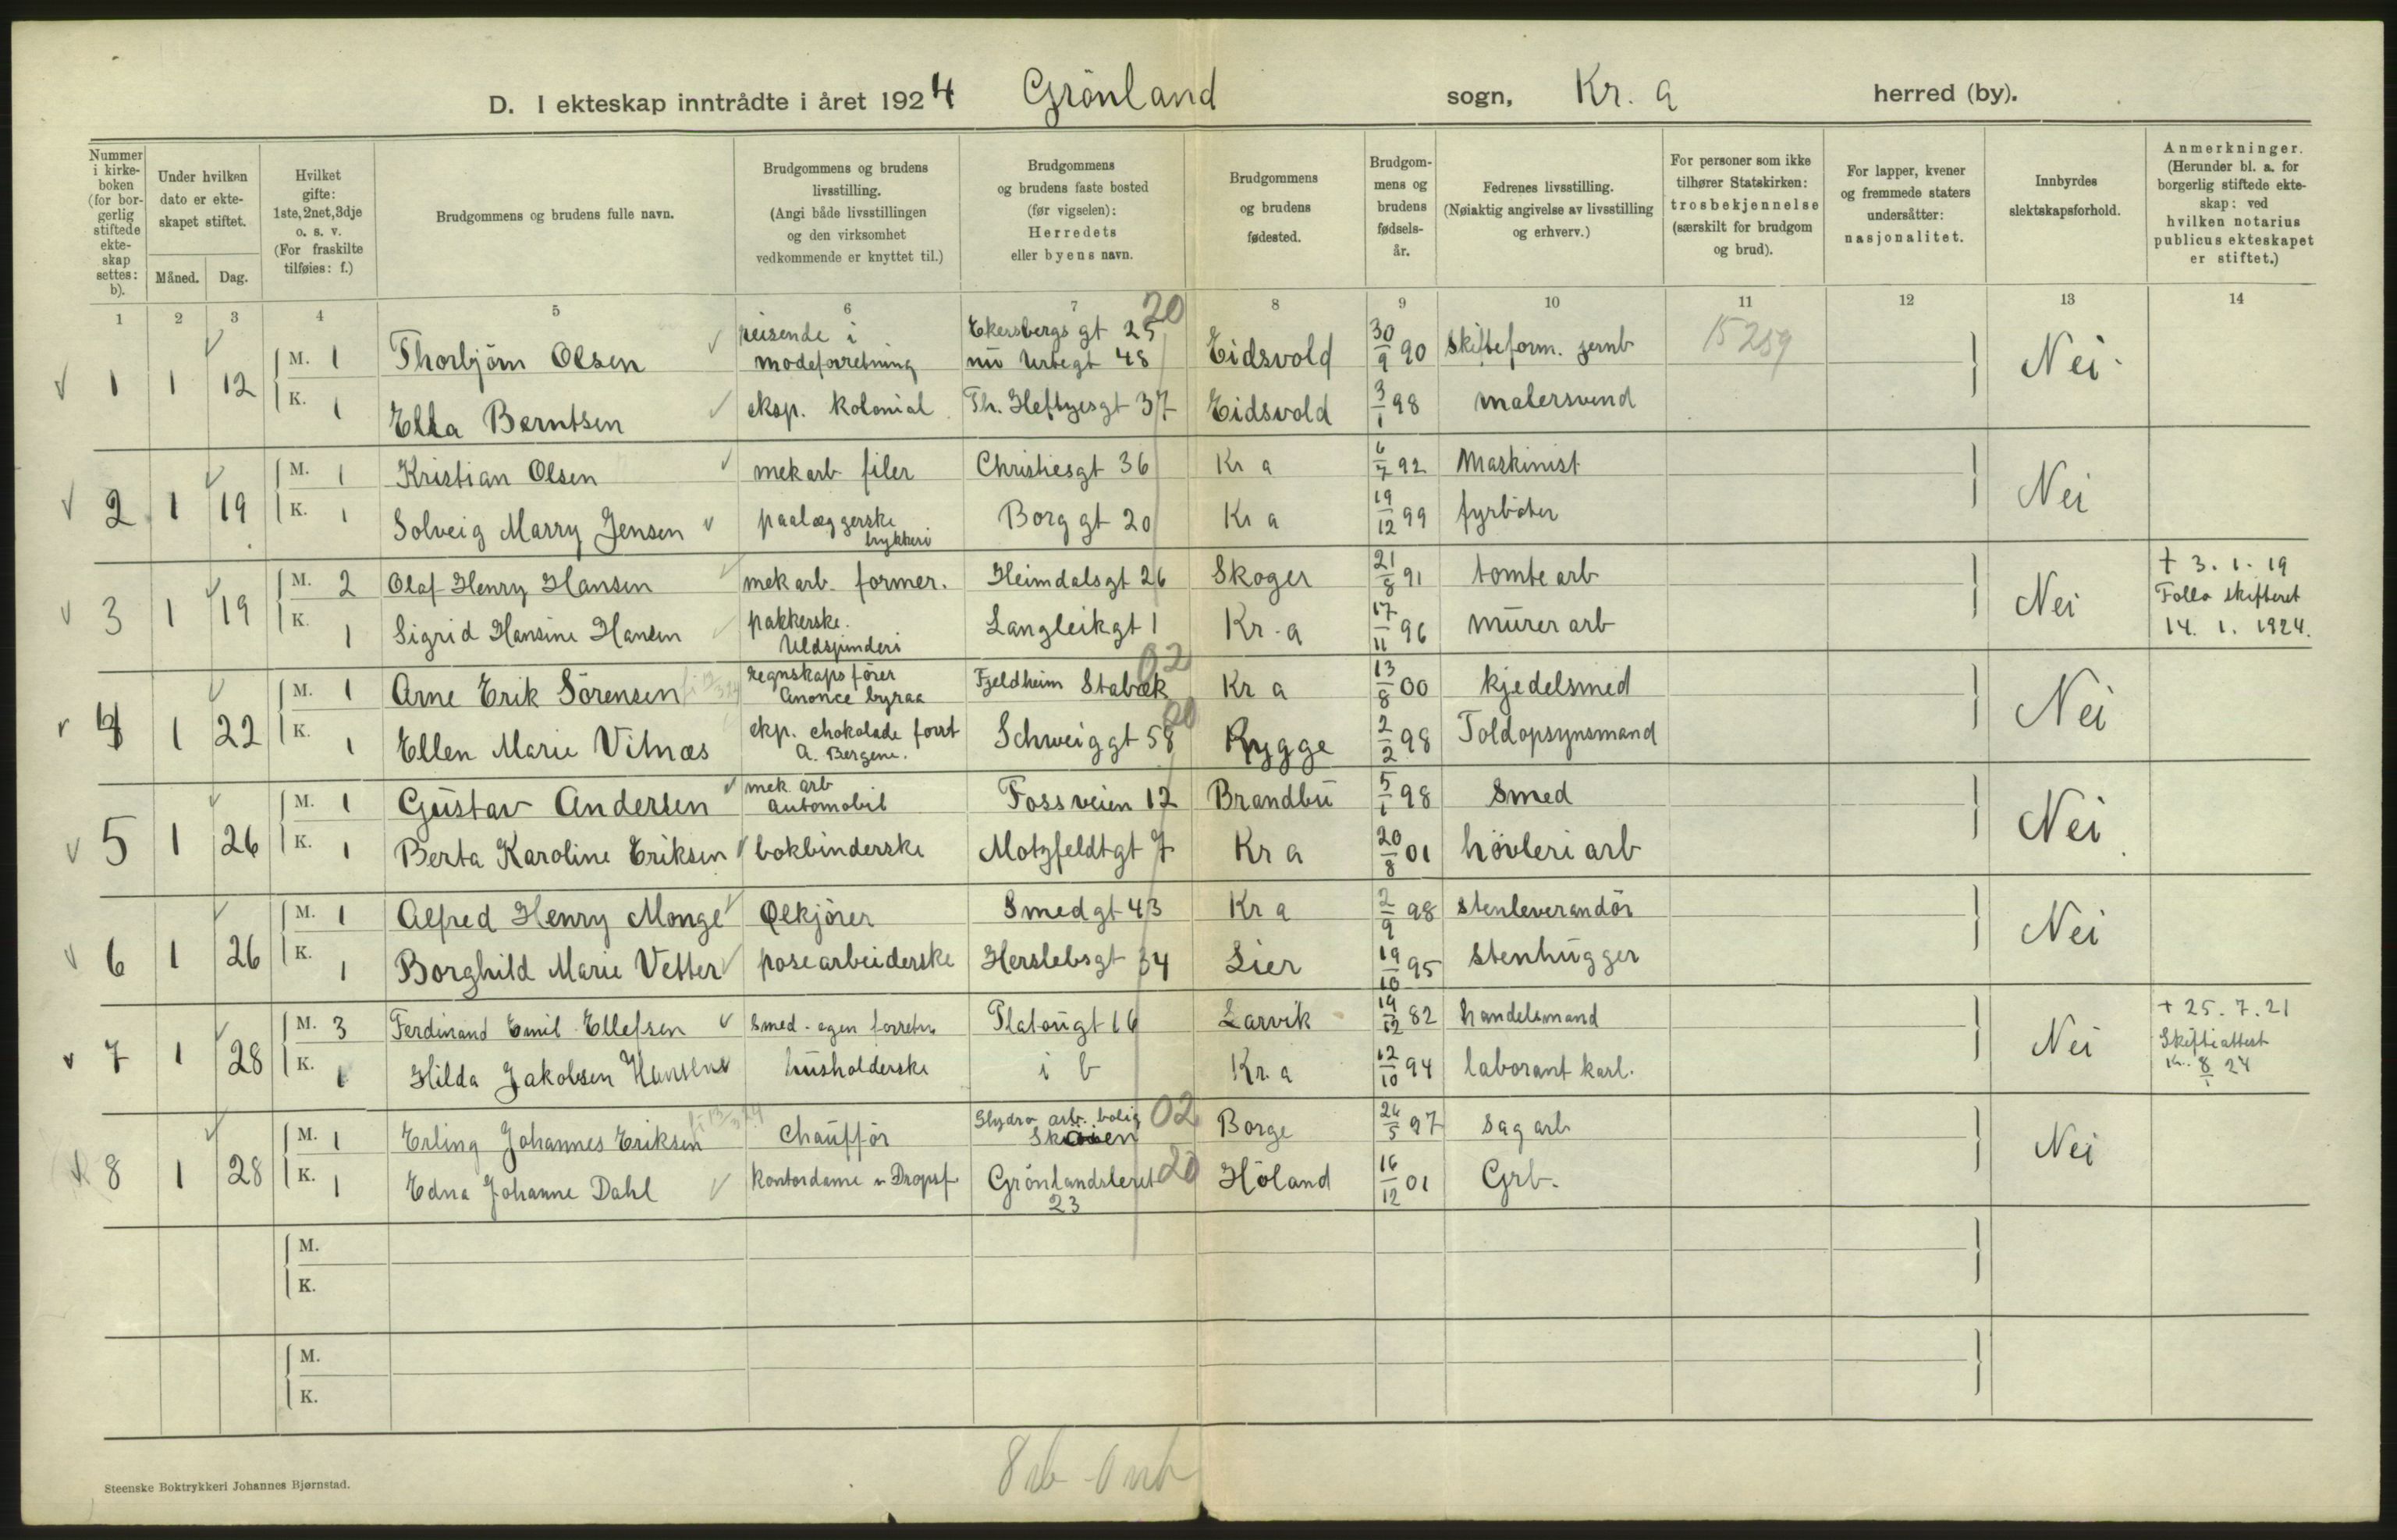 D. I ekteskap inntrådte i året 1924 Grönland sogn, Kr. a herred (by).
Nummer i kirke-boken (for bor-gerlig stiftede ekte-skap settes: b).
Under hvilken dato er ekte-skapet stiftet.
Måned. Dag.
Hvilket gifte: 1ste, 2net, 3dje o. s. v. (For fraskilte tilføies: f.)
Brudgommens og brudens fulle navn.
Brudgommens og brudens livsstilling. (Angi både livsstillingen og den virksomhet vedkommende er knyttet til.)
Brudgommens og brudens faste bosted (før vigselen): Herredets eller byens navn.
Brudgommens og brudens fødested.
Brudgom-mens og brudens fødsels-år.
Fedrenes livsstilling. (Nøiaktig angivelse av livsstilling og erhverv.)
For personer som ikke tilhører Statskirken: trosbekjennelse (særskilt for brudgom og brud).
For lapper, kvener og fremmede staters undersåtter: nasjonalitet.
Innbyrdes slektskapsforhold.
Anmerkninger. (Herunder bl. a. for borgerlig stiftede ekte-skap: ved hvilken notarius publicus ekteskapet er stiftet.)
1 2 3 4 5 6 7 8 9 10 11 12 13 14
1 1 12 M. 1 Thorbjörn Olsen reisende i modeforretning Ekersbergs gt 25 nu Urtegt 48 20 Eidsvold 30/9 90 skifteform. jernb 15259 Nei
K. 1 Ella Berntsen eksp. kolonial Th. Heftyesgt 37 Eidsvold 3/1 98 malersvend
2 1 19 M. 1 Kristian Olsen mek arb filer Christiesgt 36 Kr a 6/7 92 Maskinist Nei
K. 1 Solveig Marry Jensen paalæggerske trykkeri Borg gt 20 Kr a 19/12 99 fyrböter
3 1 19 M. 2 Olaf Henry Hansen mek arb. former. Heimdalsgt 26 Skoger 21/8 91 tomte arb Nei + 3. 1. 19 Follo skifteret 14. 1. 1924.
K. 1 Sigrid Hansine Hansen pakkerske. Uldspinderi Langleikgt 1 Kr. a 17/11 96 murer arb
4 1 22 M. 1 Arne Erik Sörensen regnskapsförer Anonce byraa Fjeldheim Stabæk 02 Kr a 13/8 00 kjedelsmed Nei
K. 1 Ellen Marie Vitnæs eksp. chokolade forrt A. Bergene. Schweiggt 58 20 Rygge 2/2 98 Toldopsynsmand
5 1 26 M. 1 Gustav Andersen mek. arb automobil Fossveien 12 Brandbu 5/1 98 Smed Nei
K. 1 Berta Karoline Eriksen bokbinderske Motzfeldtgt 7 Kr a 20/8 01 hövleri arb
6 1 26 M. 1 Alfred Henry Monge Ølkjörer Smedgt 43 Kr a 2/9 98 stenleverandör Nei
K. 1 Borghild Marie Vetter posearbeiderske Herslebsgt 34 Lier 19/10 95 stenhugger
7 1 28 M. 3 Ferdinand Emil Ellefsen smed. egen forretn. Platougt 16 Larvik 19/12 82 handelsmand Nei + 25. 7. 21 Skifteattest Kr. 8/1 24
K. 1 Hilda Jakobsen Hansen husholderske i b Kr. a 12/10 94 laborant karl.
8 1 28 M. 1 Erling Johannes Eriksen Chaufför Hydro arb. bolig 02 Borge 26/5 97 sag arb Nei
K. 1 Edna Johanne Dahl Kontordame v Dropsf Grönlandsleret 23 20 Höland 16/12 01 Grb.
M.
K.
M.
K.
Steenske Boktrykkeri Johannes Bjørnstad.